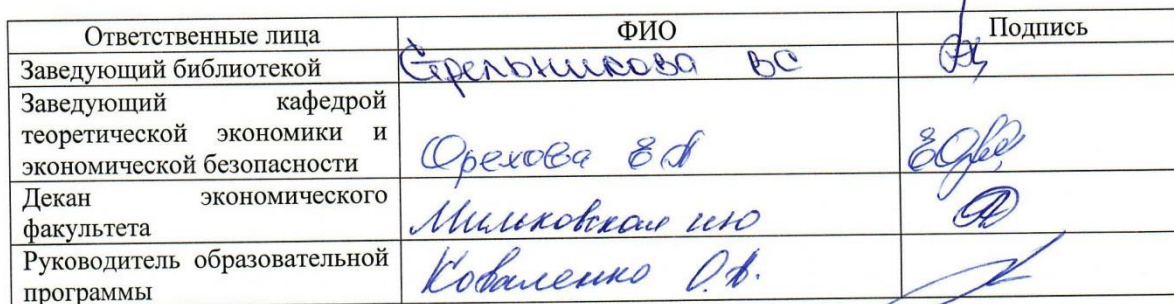 Ответственные лица ФИО Подпись
Заведующий библиотекой Стрельникова ВС
Заведующий кафедрой
теоретической экономики и
экономической безопасности Орехова ЕА
Декан экономического
факультета ИЮ
Руководитель образовательной
программы Коваленко О.А.